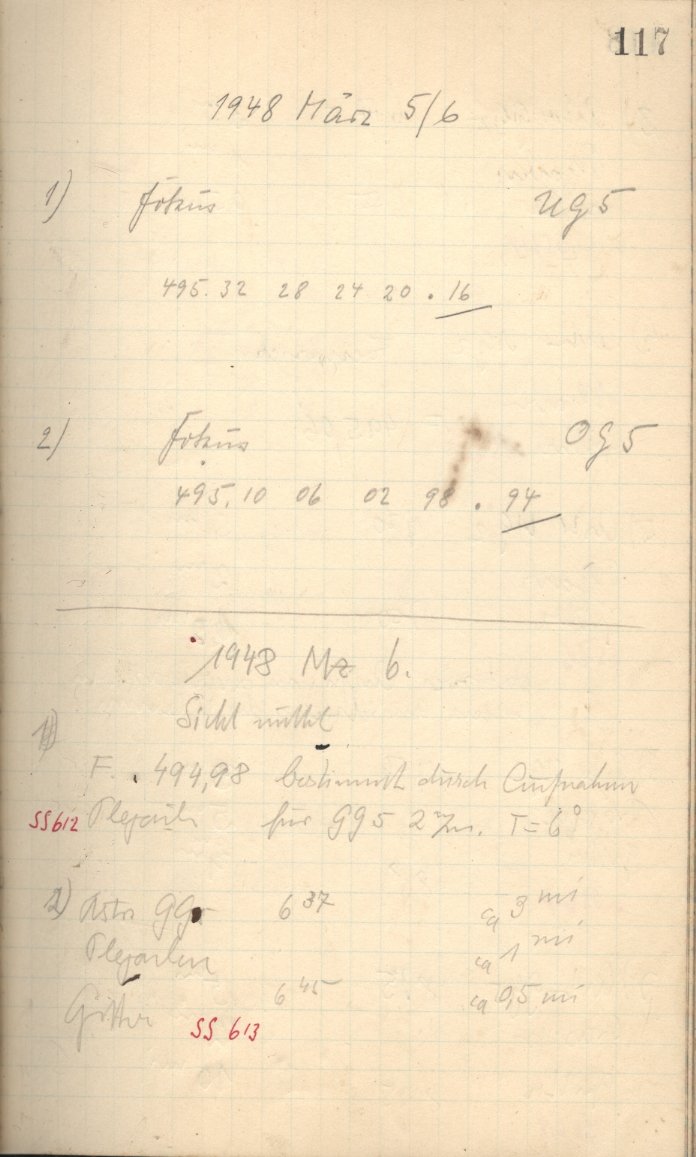 117
1948 März 5/6
1) Fokus UG 5
495.32 28 24 20 . 16
2) Fokus OG 5
495.10 06 02 98 . 94
1948 Mz 6.
Sicht mittel
1)
F. 494,98 bestimmt durch Aufnahm
SS612 Plejaden für GG5 2 T = 6°
2) Astro GG5 6 37 ca 3 mi
Plejaden ca 1 mi
Gitter 6 45 ca 0,5 mi
SS 613